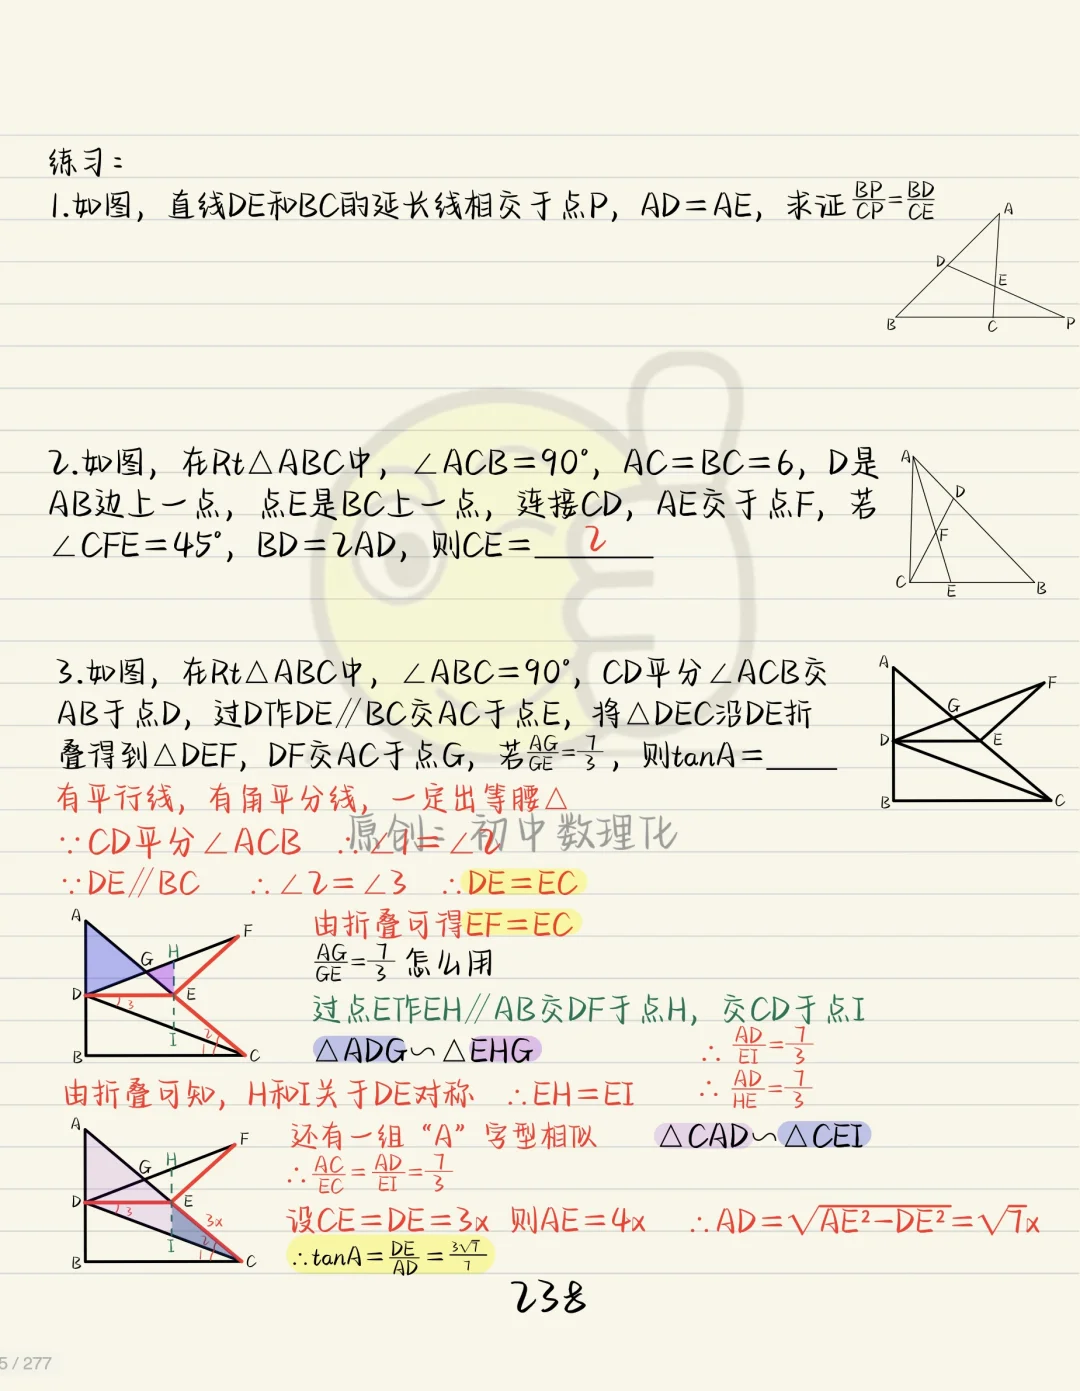 练习：
1.如图，直线DE和BC的延长线相交于点P，AD=AE，求证BP/CP=BD/CE
A
D
E
B
C
P
2.如图，在Rt△ABC中，∠ACB=90°，AC=BC=6，D是
AB边上一点，点E是BC上一点，连接CD，AE交于点F，若
∠CFE=45°，BD=2AD，则CE=2
A
D
F
C
E
B
3.如图，在Rt△ABC中，∠ABC=90°，CD平分∠ACB交
AB于点D，过D作DE∥BC交AC于点E，将△DEC沿DE折
叠得到△DEF，DF交AC于点G，若AG/GE=7/3，则tanA=____
A
F
G
D
E
B
C
有平行线，有角平分线，一定出等腰△
原创：初中数理化
∵CD平分∠ACB ∴∠1=∠2
∵DE∥BC ∴∠2=∠3 ∴DE=EC
由折叠可得EF=EC
AG/GE=7/3 怎么用
过点E作EH∥AB交DF于点H，交CD于点I
△ADG∽△EHG ∴AD/EI=7/3
由折叠可知，H和I关于DE对称 ∴EH=EI ∴AD/HE=7/3
A
F
G H
D 3 E
I 2
B 1 C
还有一组“A”字型相似 △CAD∽△CEI
∴AC/EC=AD/EI=7/3
设CE=DE=3x 则AE=4x ∴AD=√AE²-DE²=√7x
∴tanA=DE/AD=3√7/7
A
F
G H
D 3 E
3x
I 2
B 1 C
238
5 / 277